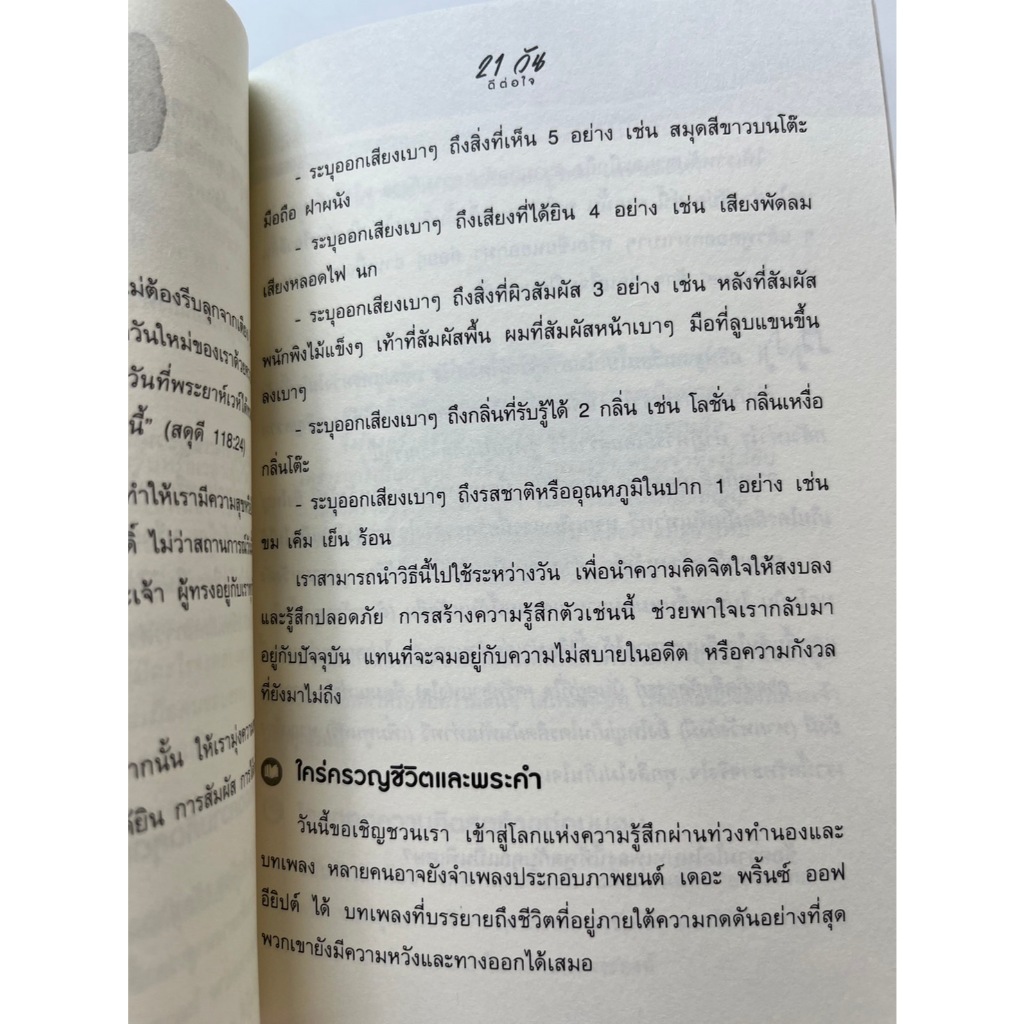 ม่ต้องรีบลุกจากเตียง
วันใหม่ของเราด้วย
วันที่พระยาห์เวห์
นี้” (สดุดี 118:24)
ทำให้เรามีความสุข
ไม่ว่าสถานการณ์
ะเจ้า ผู้ทรงอยู่กับเรา
ากนั้น ให้เรามุ่งความ
ด้ยิน การสัมผัส
21 วัน
ดีต่อใจ
- ระบุออกเสียงเบาๆ ถึงสิ่งที่เห็น 5 อย่าง เช่น สมุดสีขาวบนโต๊ะ
มือถือ ฝาผนัง
- ระบุออกเสียงเบาๆ ถึงเสียงที่ได้ยิน 4 อย่าง เช่น เสียงพัดลม
เสียงหลอดไฟ นก
- ระบุออกเสียงเบาๆ ถึงสิ่งที่ผิวสัมผัส 3 อย่าง เช่น หลังที่สัมผัส
พนักพิงไม้แข็งๆ เท้าที่สัมผัสพื้น ผมที่สัมผัสหน้าเบาๆ มือที่ลูบแขนขึ้น
ลงเบาๆ
- ระบุออกเสียงเบาๆ ถึงกลิ่นที่รับรู้ได้ 2 กลิ่น เช่น โลชั่น กลิ่นเหงื่อ
กลิ่นโต๊ะ
- ระบุออกเสียงเบาๆ ถึงรสชาติหรืออุณหภูมิในปาก 1 อย่าง เช่น
ขม เค็ม เย็น ร้อน
เราสามารถนำวิธีนี้ไปใช้ระหว่างวัน เพื่อนำความคิดจิตใจให้สงบลง
และรู้สึกปลอดภัย การสร้างความรู้สึกตัวเช่นนี้ ช่วยพาใจเรากลับมา
อยู่กับปัจจุบัน แทนที่จะจมอยู่กับความไม่สบายในอดีต หรือความกังวล
ที่ยังมาไม่ถึง
ใคร่ครวญชีวิตและพระคำ
วันนี้ขอเชิญชวนเรา เข้าสู่โลกแห่งความรู้สึกผ่านท่วงทำนองและ
บทเพลง หลายคนอาจยังจำเพลงประกอบภาพยนต์ เดอะ พริ้นซ์ ออฟ
อียิปต์ ได้ บทเพลงที่บรรยายถึงชีวิตที่อยู่ภายใต้ความกดดันอย่างที่สุด
พวกเขายังมีความหวังและทางออกได้เสมอ